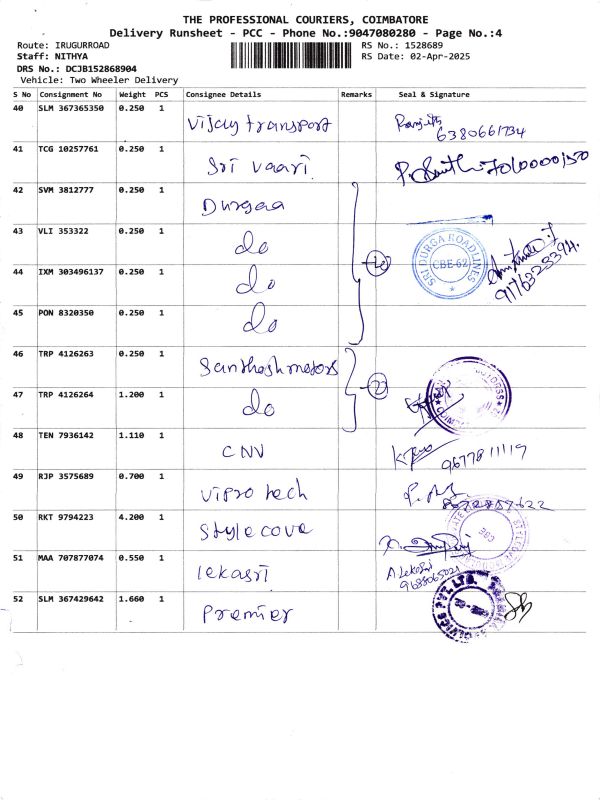 THE PROFESSIONAL COURIERS, COIMBATORE
Delivery Runsheet - PCC - Phone No.:9047080280 - Page No.:4
Route: IRUGURROAD RS No.: 1528689
Staff: NITHYA RS Date: 02-Apr-2025
DRS No.: DCJB152868904
Vehicle: Two Wheeler Delivery
S No Consignment No Weight PCS Consignee Details Remarks Seal & Signature
40 SLM 367365350 0.250 1 Vijay transport Ranjith 6380661734
41 TCG 10257761 0.250 1 Sri Vaari
42 SVM 3812777 0.250 1 Durgaa
43 VLI 353322 0.250 1 do SRI DURGA ROADLINES CBE-62
44 IXM 303496137 0.250 1 do 9176323394
45 PON 8320350 0.250 1 do
46 TRP 4126263 0.250 1 Santhosh motors
47 TRP 4126264 1.200 1 do 2
48 TEN 7936142 1.110 1 CNV 9677811119
49 RJP 3575689 0.700 1 Vipro tech
50 RKT 9794223 4.200 1 Style cove
51 MAA 707877074 0.550 1 lekasri A Lekasri 9688065021
52 SLM 367429642 1.660 1 Premier